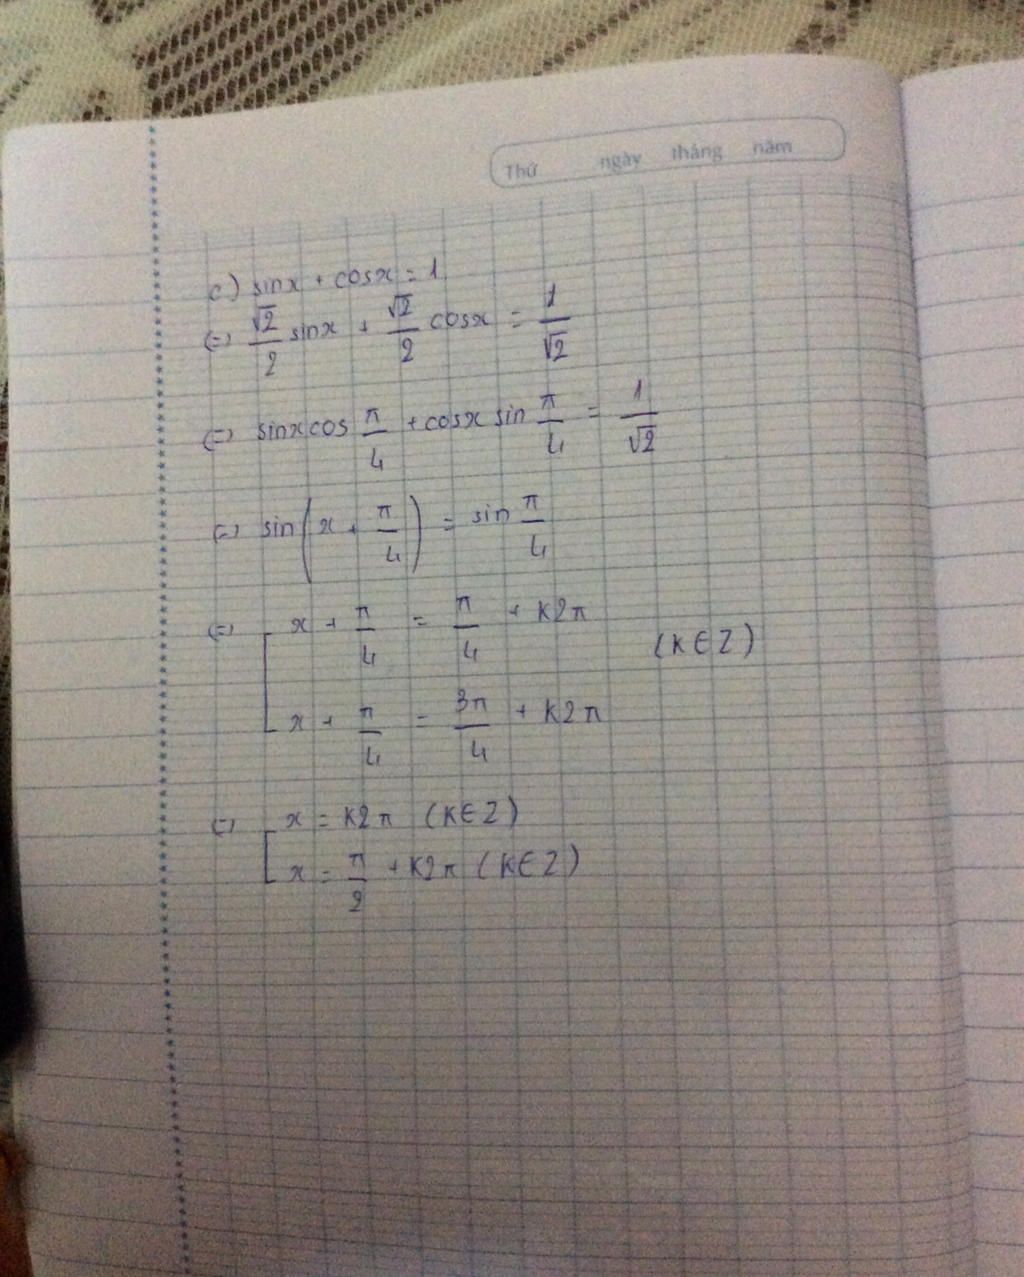 Thứ ngày tháng năm
c) sinx + cosx = 1
(=) √2/2 sinx + √2/2 cosx = 1/√2
(=) sinx cos π/4 + cosx sin π/4 = 1/√2
(=) sin(x + π/4) = sin π/4
(=) [ x + π/4 = π/4 + k2π
(k∈Z)
x + π/4 = 3π/4 + k2π
(=) [ x = k2π (k∈Z)
x = π/2 + k2π (k∈Z)